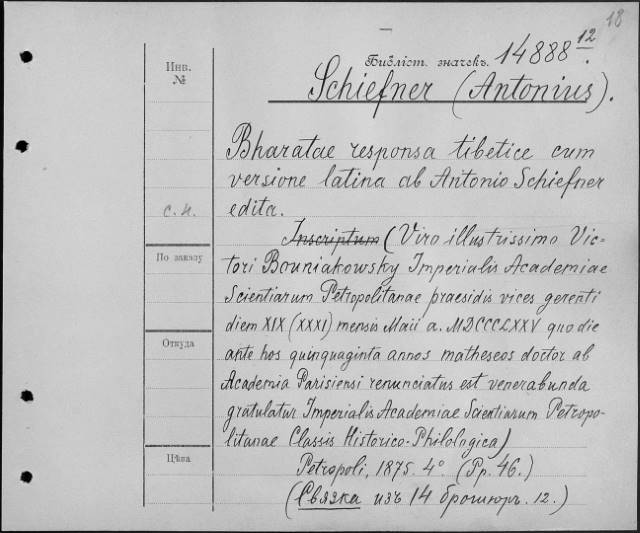 18
Инв.
№
Библіот. значекъ. 14888 12.
Schiefner (Antonius).
Bharatae responsa tibetice cum
versione latina ab Antonio Schiefner
с.н.
edita.
Inscriptum (Viro illustrissimo Vic=
По заказу
tori Bouniakowsky Imperialis Academiae
Scientiarum Petropolitanae praesidis vices gerenti
diem XIX (XXXI) mensis Maii a. MDCCCLXXV quo die
Откуда
ante hos quinquaginta annos matheseos doctor ab
Academia Parisiensi renunciatus est venerabunda
gratulatur Imperialis Academiae Scientiarum Petropo-
litanae Classis Historico-Philologica)
Цѣна
Petropoli, 1875. 4°. (Pp. 46.)
(Связка изъ 14 брошюръ. 12.)